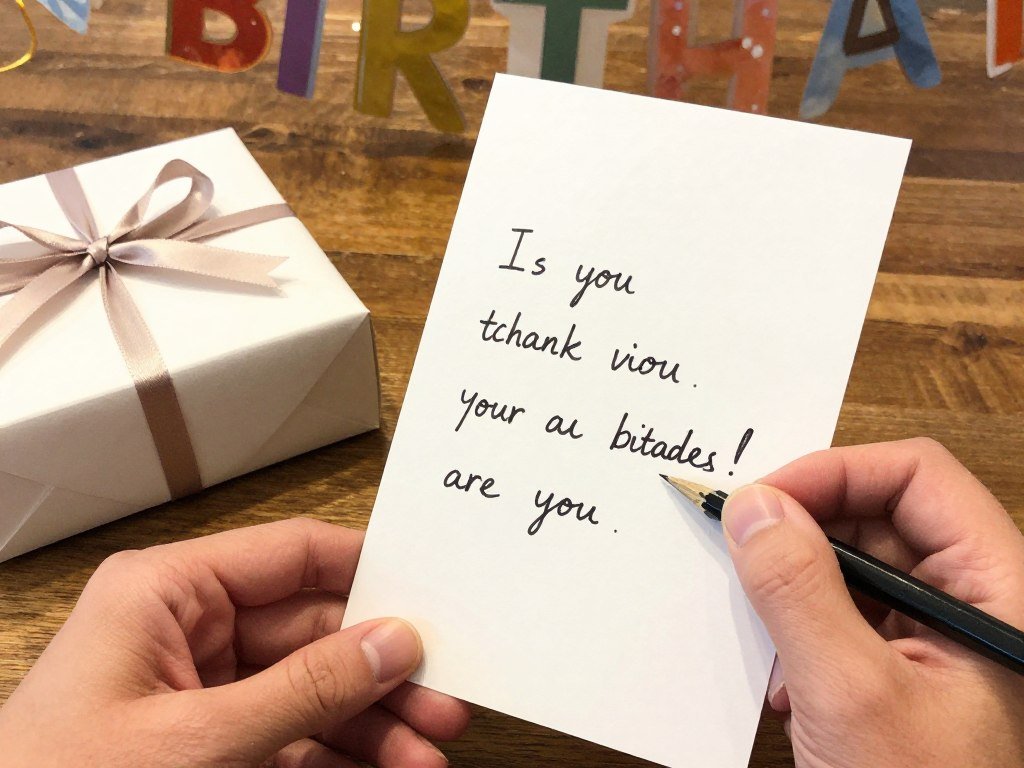 BIRTHA
Is you
tchank viou.
your au bitades!
are you.